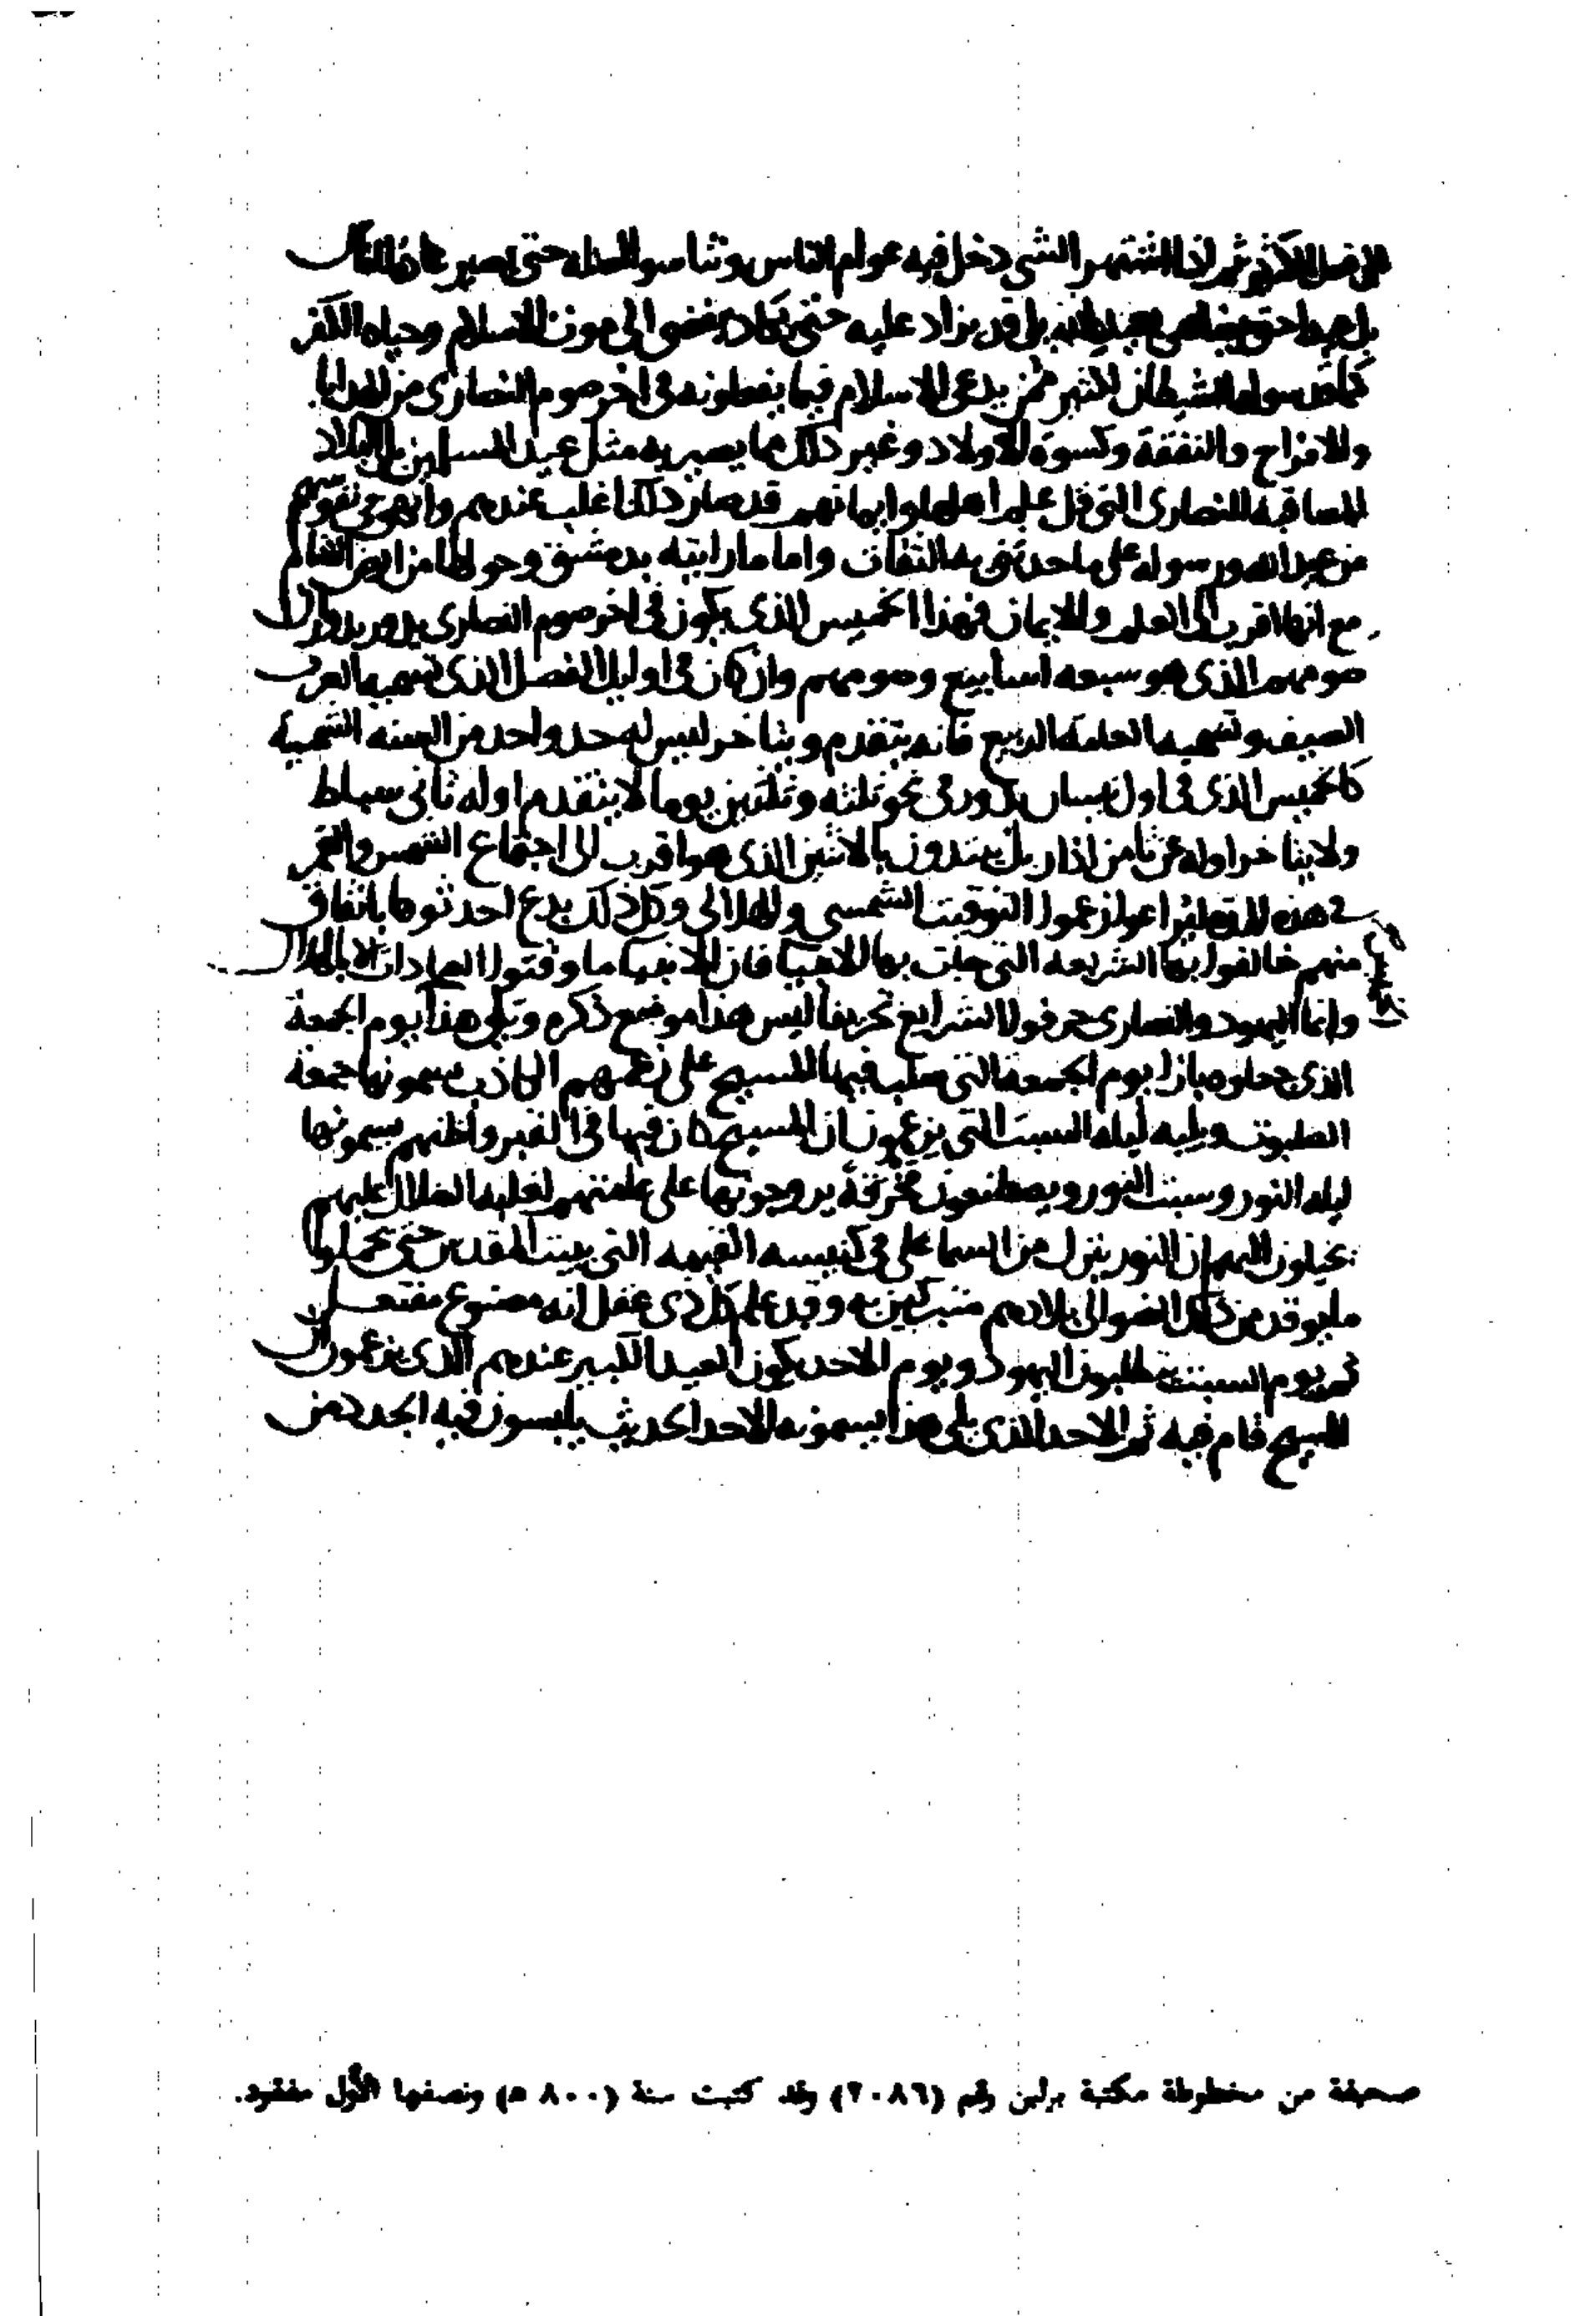 ثم اذا اشتهر الشي دخل فيه عوام الناس وتناسوا اصله حتى يصير عادة للناس
بل عيدا حتى يضاهى بعيد الله بل قد يزاد عليه حتى يكاد يفضى الى موت الاسلام وحياه الكفر
كما قد سوله الشيطان لكثير ممن يدعى الاسلام فيما يفعلونه فى اخر صوم النصارى من الهدايا
والافراح والنفقة وكسوة الاولاد وغير ذلك مما يصير به مثل عيد المسلمين بل البلاد
المصاقبه للنصارى التى قل علم اهلها وايمانهم قد صار ذلك اغلب عندهم وابهى فى نفوسهم
من عيد الله ورسوله على ما حدثنى به الثقات واما ما رايته بدمشق وحولها من ارض الشام
مع انها اقرب الى العلم والايمان فهذا الخميس الذى يكون فى اخر صوم النصارى يدور بدوران
صومهم الذى هو سبعه اسابيع وصومهم وان كان فى اوايل الفصل الذى تسميه العرب
الصيف وتسميه العامه الربيع فانه يتقدم ويتاخر ليس له حد واحد من السنه الشمسية
كالخميس الذى فى اول نيسان بل يدور فى نحو ثلثه وثلثين يوما لا يتقدم اوله ثانى سباط
ولا يتاخر اوله عن ثامن اذار بل يبتدون بالاثنين الذى هو اقرب الى اجتماع الشمس والقمر
فى هذه المده ليراعوا زعموا التوقيت الشمسى والهلالى وكل ذلك بدع احدثوها باتفاق
منهم خالفوا بها الشريعه التى جات بها الانبيا فان الانبيا ما وقتوا العبادات الا بالهلال
وانما اليهود والنصارى حرفوا الشرايع تحريفا ليس هذا موضع ذكره وتلى هذا يوم الجمعة
الذى جعلوه بازا يوم الجمعه التى صلب فيها المسيح على زعمهم الكاذب يسمونها جمعة
الصلبوت ويليه ليله السبت التى يزعمون ان المسيح كان فيها فى القبر واظنهم يسمونها
ليله النور وسبت النور ويصطنعون مخرقة يروجونها على عامتهم لغلبه الضلال عليهم
يخيلون اليهم ان النور ينزل من السما على فى كنيسه القيمه التى ببيت المقدس حتى يحملوا
ما يوقد من ذلك الضو الى بلادهم متبركين به وقد علم كل ذى عقل انه مصنوع مفتعل
ثم يوم السبت يطلبون اليهود ويوم الاحد يكون العيد الكبير عندهم الذى يزعمون ان
المسيح قام فيه ثم الاحد الذى يلى هذا يسمونه الاحد الحديث يلبسون فيه الجدد من
صحيفة من مخطوطة مكتبة برلين رقم (٢٠٨٦) وقد كتبت سنة (٨٠٠ ه) ونصفها الأول مفقود.